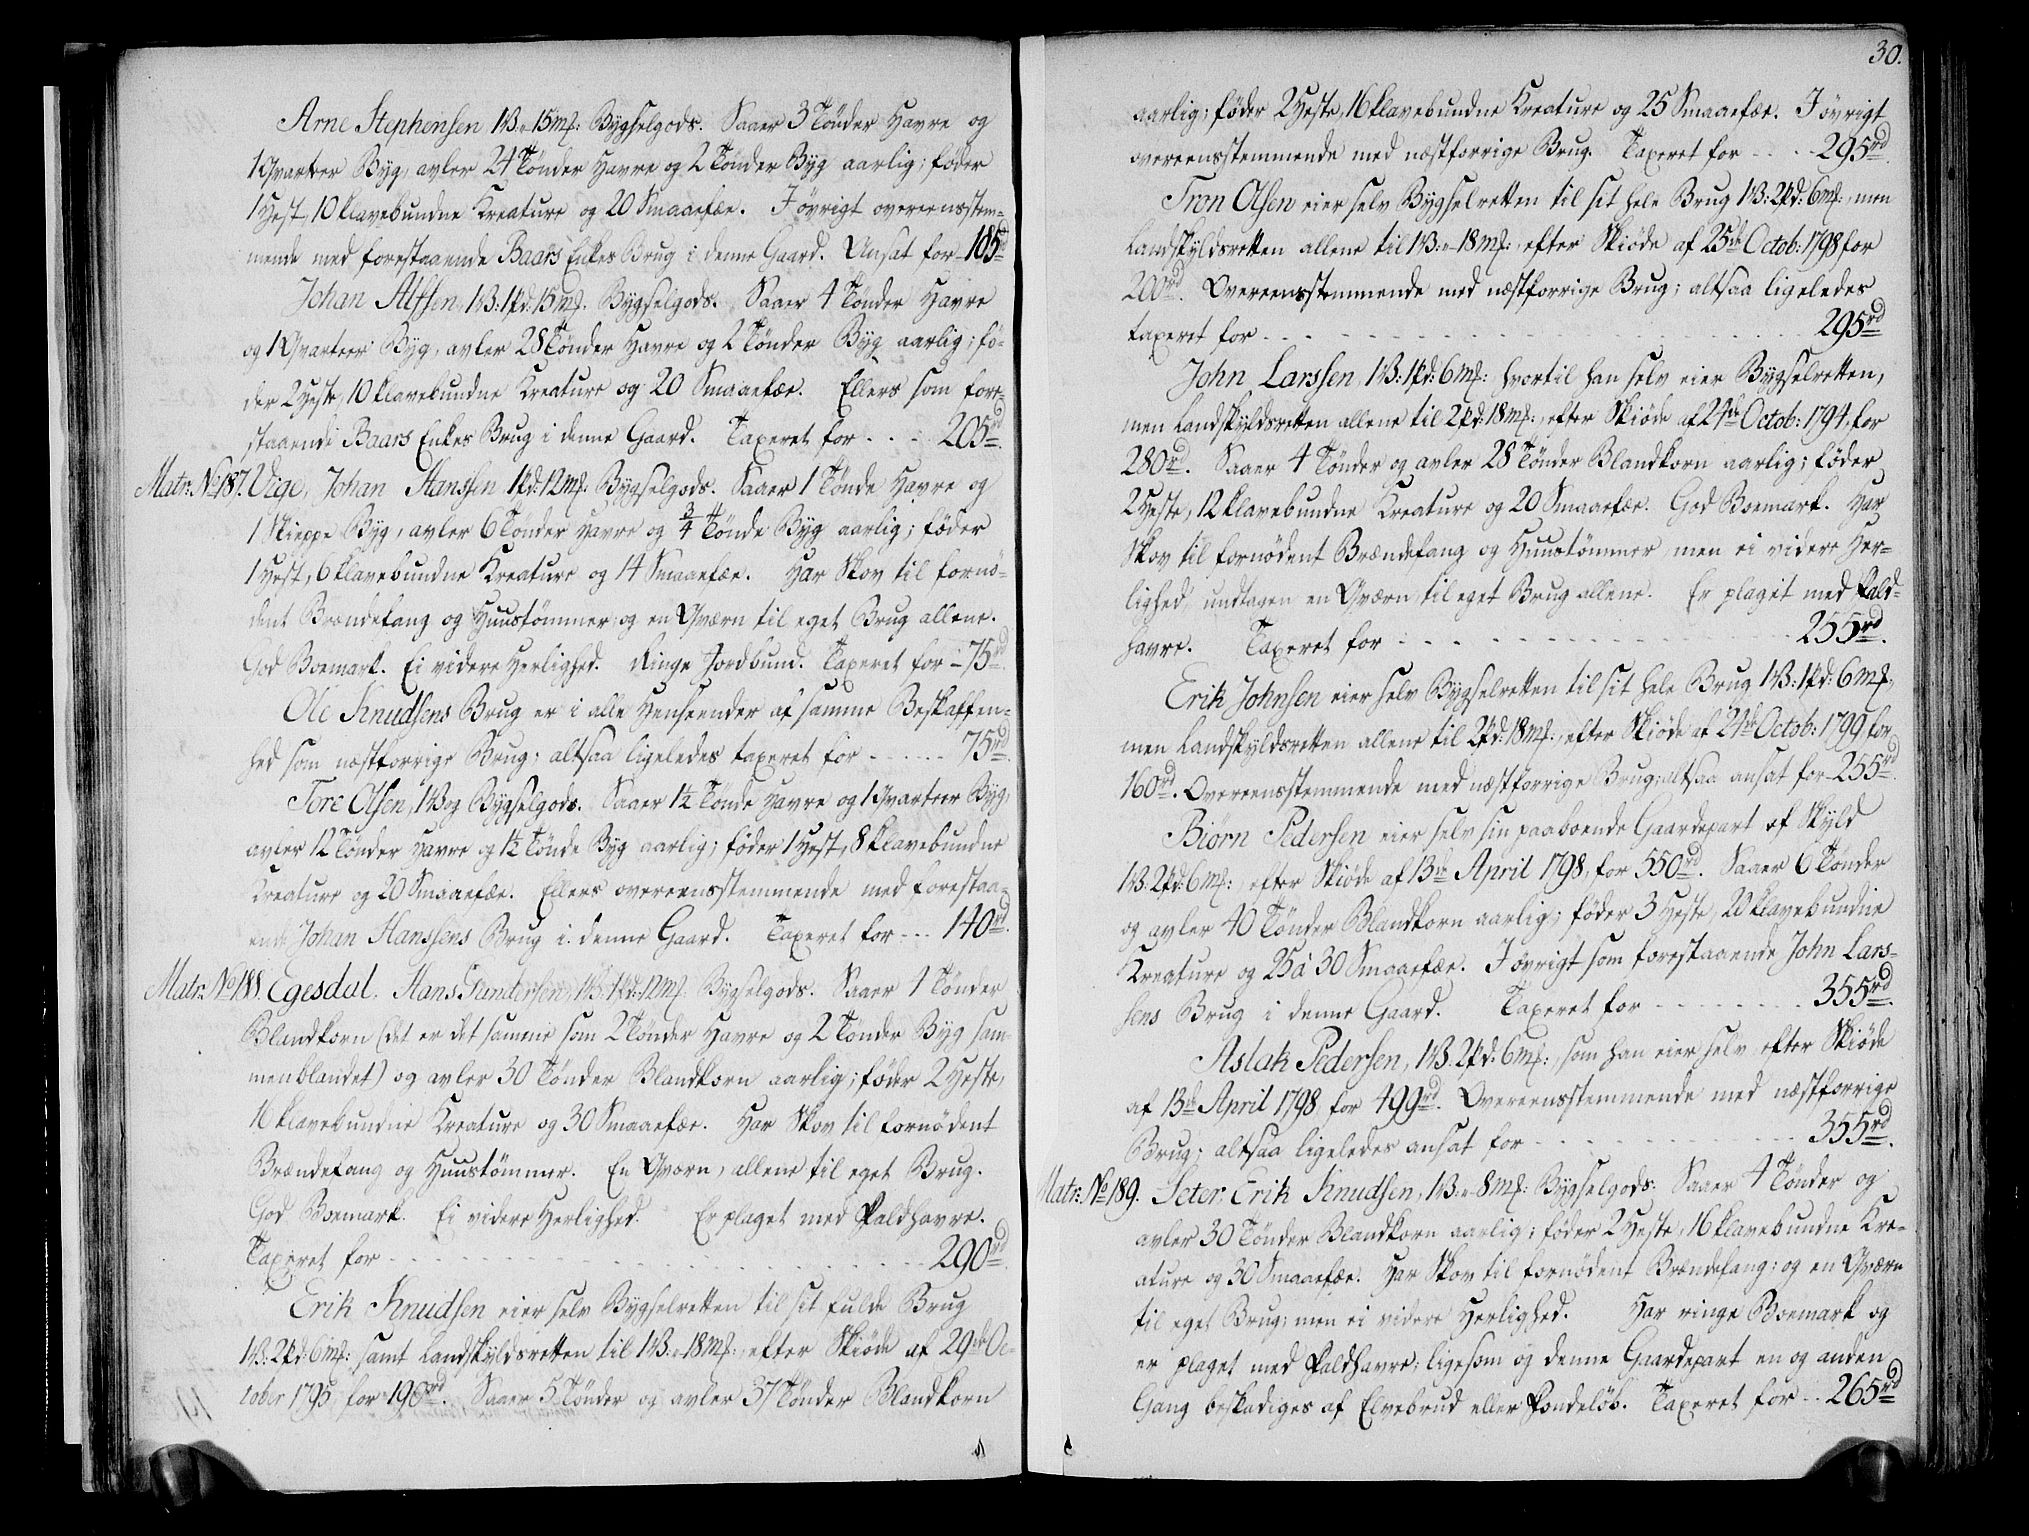 Arne Stephensen 1B. „ 15mf: Bygselgods. Saaer 3 Tönder Havre og
1 Qvarteer Byg, avler 24 Tönder Havre og 2 Tönder Byg aarlig; föder
1 Hest, 10 klavebundne Kreature og 20 Smaaefæe. I övrigt overeensstem-
mende med forestaaende Baars Enkes Brug i denne Gaard. Ansat for - 185rd
Johan Alfsen, 1B: 1fd: 15mf. Bygselgods. Saaer 4 Tönder Havre
og 1 Qvarteer Byg, avler 28 Tönder Havre og 2 Tönder Byg aarlig; fö-
der 2 Heste, 10 klavebundne Kreature og 20 Smaaefæe. Ellers som fore-
staaende Baars Enkes Brug i denne Gaard. Taxeret for - - - 205rd.
Matr: No 187. Vige, Johan Hanssen 1fd: 12mf: Bygselgods. Saaer 1 Tönde Havre og
1 Skieppe Byg, avler 6 Tönder Havre og 3/4 Tönde Byg aarlig; föder
1 Hest, 6 klavebundne Kreature og 14 Smaaefæe. Har Skov til fornö-
dent Brændefang og Huustömmer, og en Qværn til eget Brug allene.
God Boemark. Ei videre Herlighed. Ringe Jordbund. Taxeret for - 75rd.
Ole Knudsens Brug er i alle Henseender af samme Beskaffen-
hed som næstforrige Brug; altsaa ligeledes taxeret for - - - - - - 75rd.
Tore Olsen, 1B og Bygselgods. Saaer 1½ Tönde Havre og 1 Qvarteer Byg,
avler 12 Tönder Havre og 1½ Tönde Byg aarlig; föder 1 Hest, 8 klavebundne
Kreature og 20 Smaaefæe. Ellers overeensstemmende med forestaa-
ende Johan Hanssens Brug i denne Gaard. Taxeret for - - - 140rd.
Matr: No 188. Egesdal. Hans Gundersen, 1B: 1fd: 12mf: Bygselgods. Saaer 4 Tönder
Blandkorn (det er det samme som 2 Tönder Havre og 2 Tönder Byg sam-
menblandet) og avler 30 Tönder Blandkorn aarlig; föder 2 Heste,
16 klavebundne Kreature og 30 Smaaefæe. Har Skov til fornödent
Brændefang og Huustömmer. En Qværn, allene til eget Brug.
God Boemark. Ei videre Herlighed. Er plaget med Faldhavre.
Taxeret for - - - 290rd.
Erik Knudsen eier selv Bygselretten til sit fulde Brug
1B: 2fd: 6mf: samt Landskyldsretten til 1B. „ 18mf:, efter Skiöde af 29de Oc-
tober 1795 for 190rd. Saaer 5 Tönder og avler 37 Tönder Blandkorn
30.
aarlig; föder 2 Heste, 16 klavebundne Kreature og 25 Smaaefæe. I övrigt
overeensstemmende med næstforrige Brug. Taxeret for - - - - 295rd.
Tron Olsen eier selv Bygselretten til sit hele Brug 1B: 2fd: 6mf:, men
Landskyldsretten allene til 1B. „ 18mf:, efter Skiöde af 25de Octob: 1798 for
200rd. Overeensstemmende med næstforrige Brug; altsaa ligeledes
taxeret for - - - 295rd
John Larssen, 1B: 1fd: 6mf: hvortil han selv eier Bygselretten,
men Landskyldsretten allene til 2fd: 18mf:, efter Skiöde af 24de Octob: 1794, for
280rd. Saaer 4 Tönder og avler 28 Tönder Blandkorn aarlig; föder
2 Heste, 12 klavebundne Kreature og 20 Smaaefæe. God Boemark. Har
Skov til fornödent Brændefang og Huustömmer, men ei videre Her-
lighed, undtagen en Qværn, til eget Brug allene. Er plaget med Fald-
havre. Taxeret for - - - 255rd.
Erik Johnsen eier selv Bygselretten til sit hele Brug 1B: 1fd: 6mf,
men Landskyldsretten allene til 2fd: 18mf:, efter Skiöde af 24de Octob: 1799 for
160rd. Overeensstemmende med næstforrige Brug; altsaa ansat for - 255rd.
Biörn Pedersen eier selv sin paaboende Gaardepart af Skyld
1B. 2fd: 6mf:, efter Skiöde af 13de April 1798, for 550rd. Saaer 6 Tönder
og avler 40 Tönder Blandkorn aarlig; föder 3 Heste, 20 klavebundne
Kreature og 25 à 30 Smaaefæe. I övrigt som forestaaende John Lars-
sens Brug i denne Gaard. Taxeret for - - - 355rd.
Aslak Pedersen, 1B. 2fd: 6mf:, som han eier selv efter Skiöde
af 13de April 1798 for 499rd. Overeensstemmende med næstforrige
Brug; altsaa ligeledes ansat for - - - 355rd.
Matr: No 189. Seter. Erik Knudsen, 1B. „ 8mf: Bygselgods. Saaer 4 Tönder og
avler 30 Tönder Blandkorn aarlig; föder 2 Heste, 16 klavebundne Kre-
ature og 30 Smaaefæe. Har Skov til fornödent Brændefang; og en Qværn
til eget Brug; men ei videre Herlighed. Har ringe Boemark og
er plaget med Faldhavre; ligesom og denne Gaardepart en og anden
Gang beskadiges af Elvebrud eller Fondelöb. Taxeret for - - 265rd